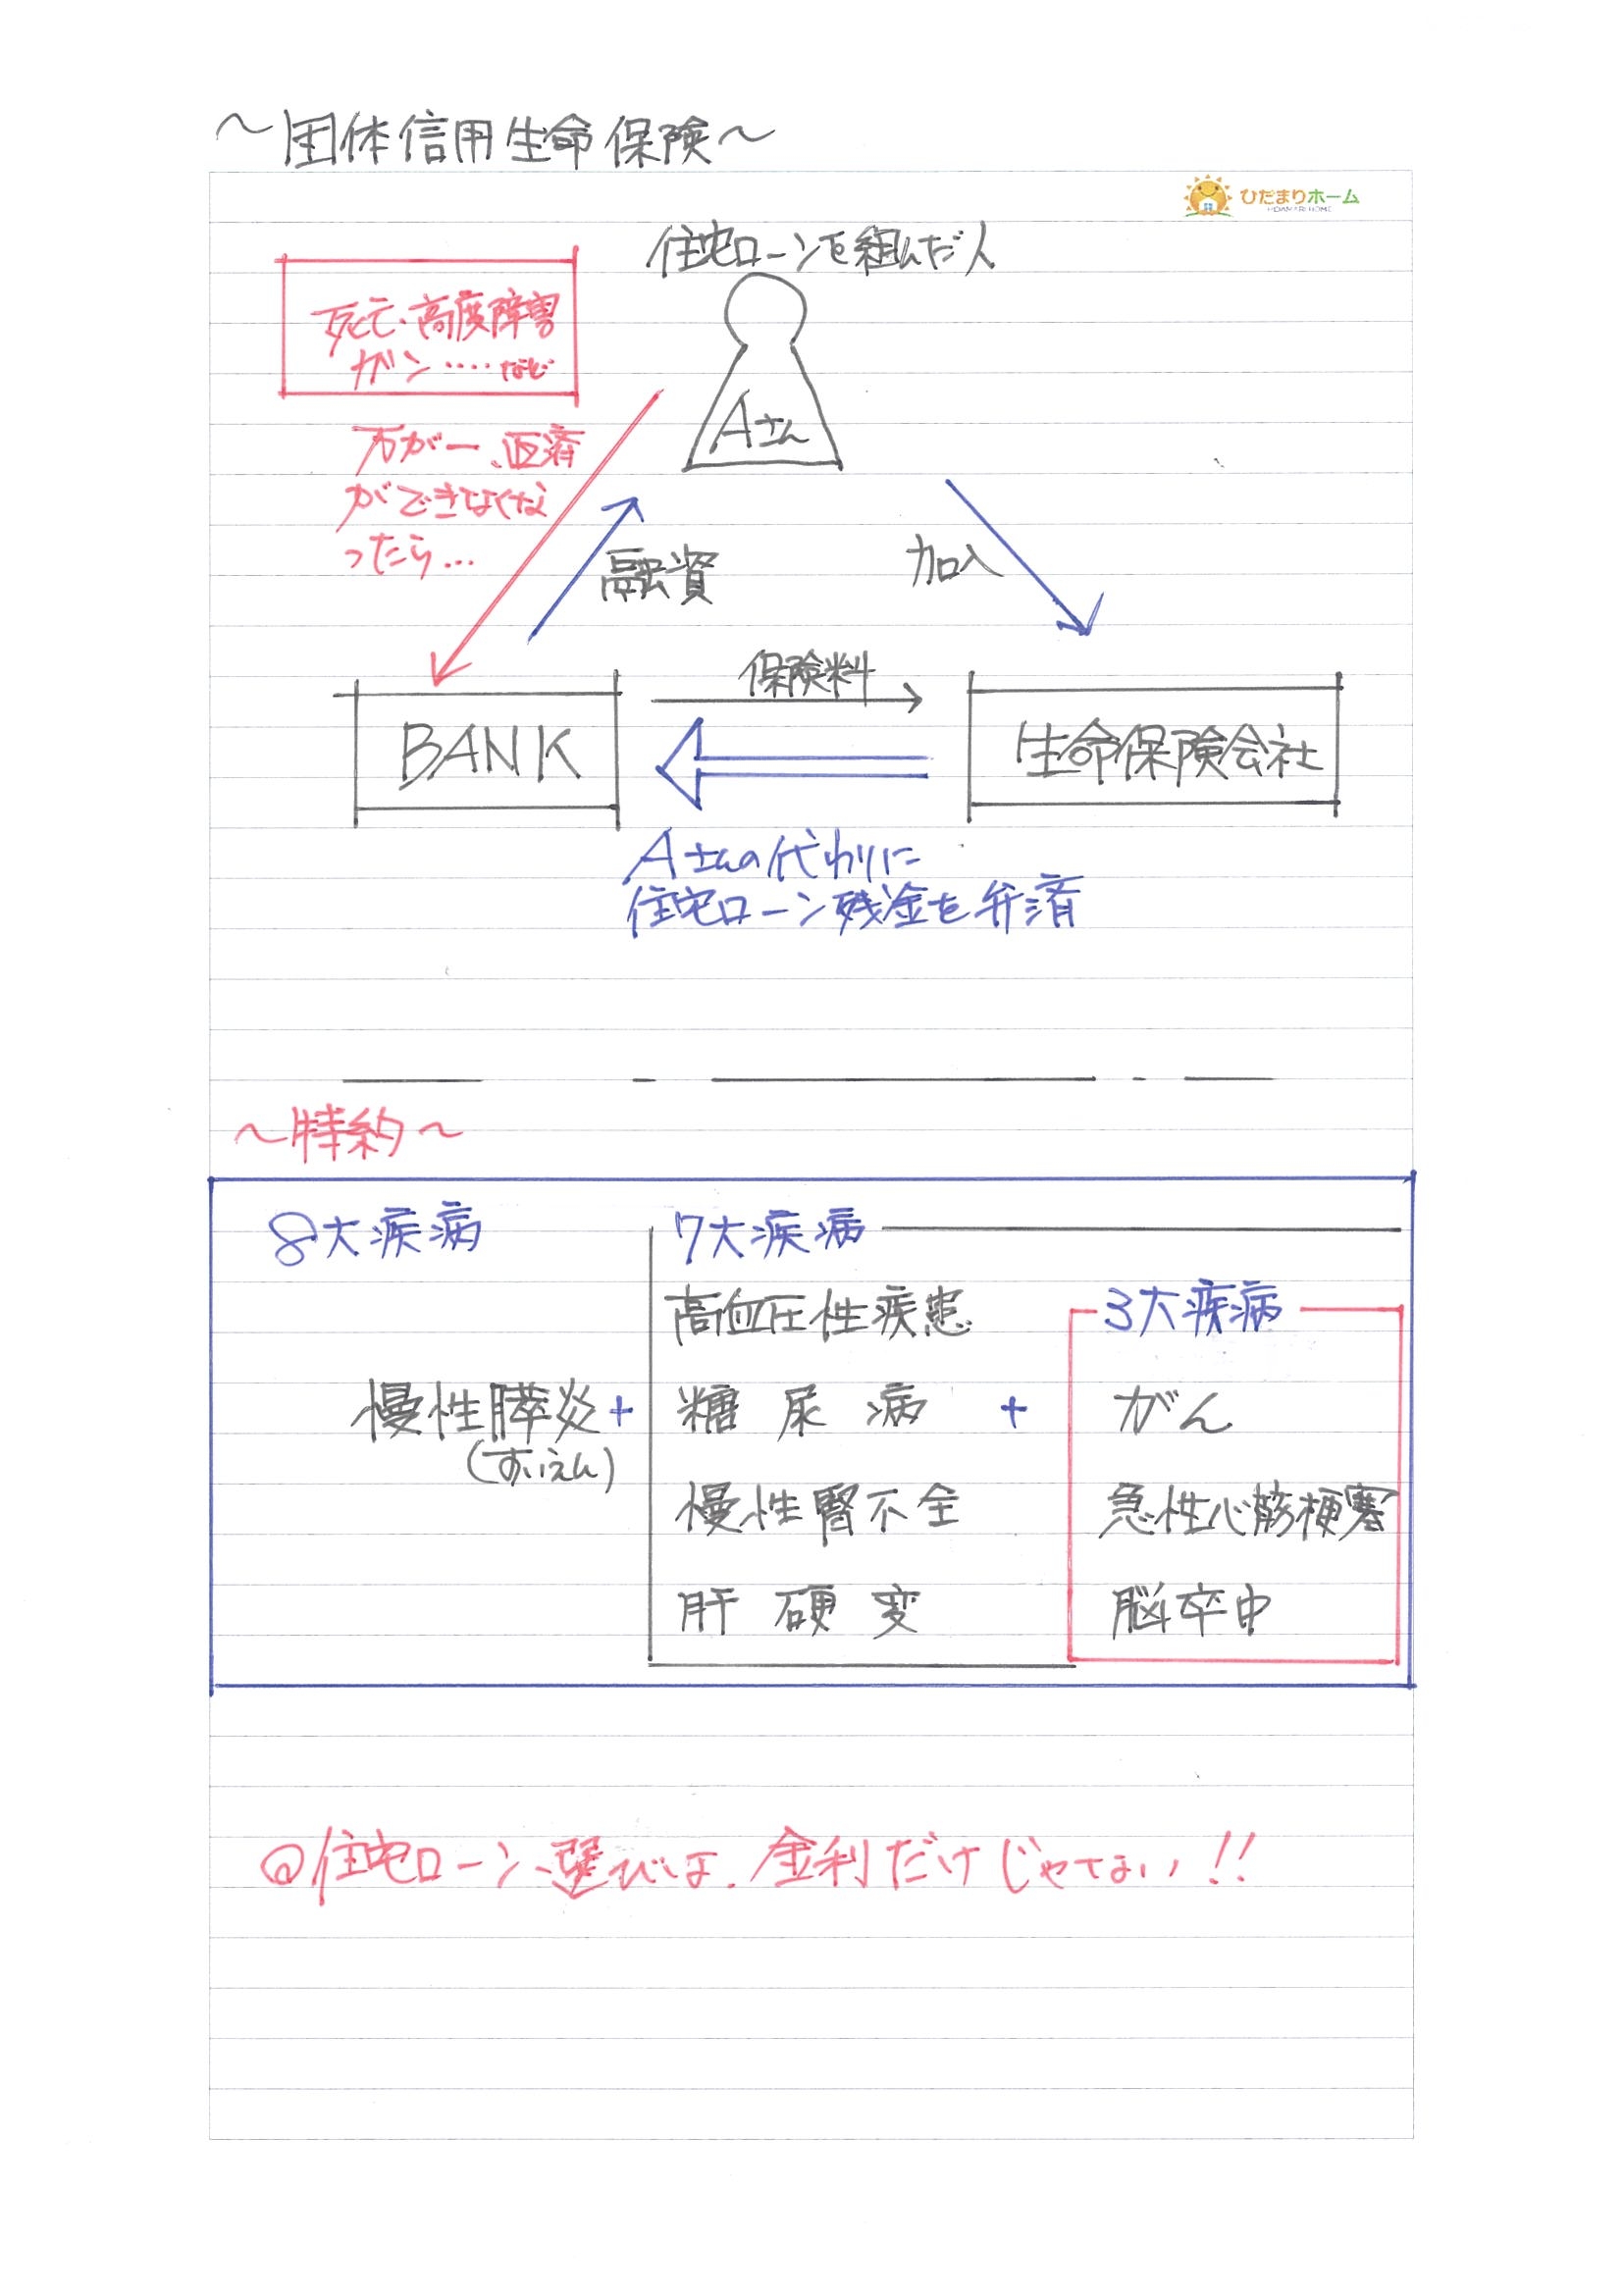 ～団体信用生命保険～
ひだまりホーム
HIDAMARI HOME
住宅ローンを組んだ人
死亡・高度障害
ガン‥‥など
Aさん
万が一、返済
ができなくな
ったら…
融資
加入
保険料
BANK
生命保険会社
Aさんの代わりに
住宅ローン残金を弁済
～特約～
8大疾病
7大疾病
高血圧性疾患
3大疾病
慢性膵炎+
(すいえん)
糖尿病
+
がん
慢性腎不全
急性心筋梗塞
肝硬変
脳卒中
◎住宅ローン選びは、金利だけじゃない!!